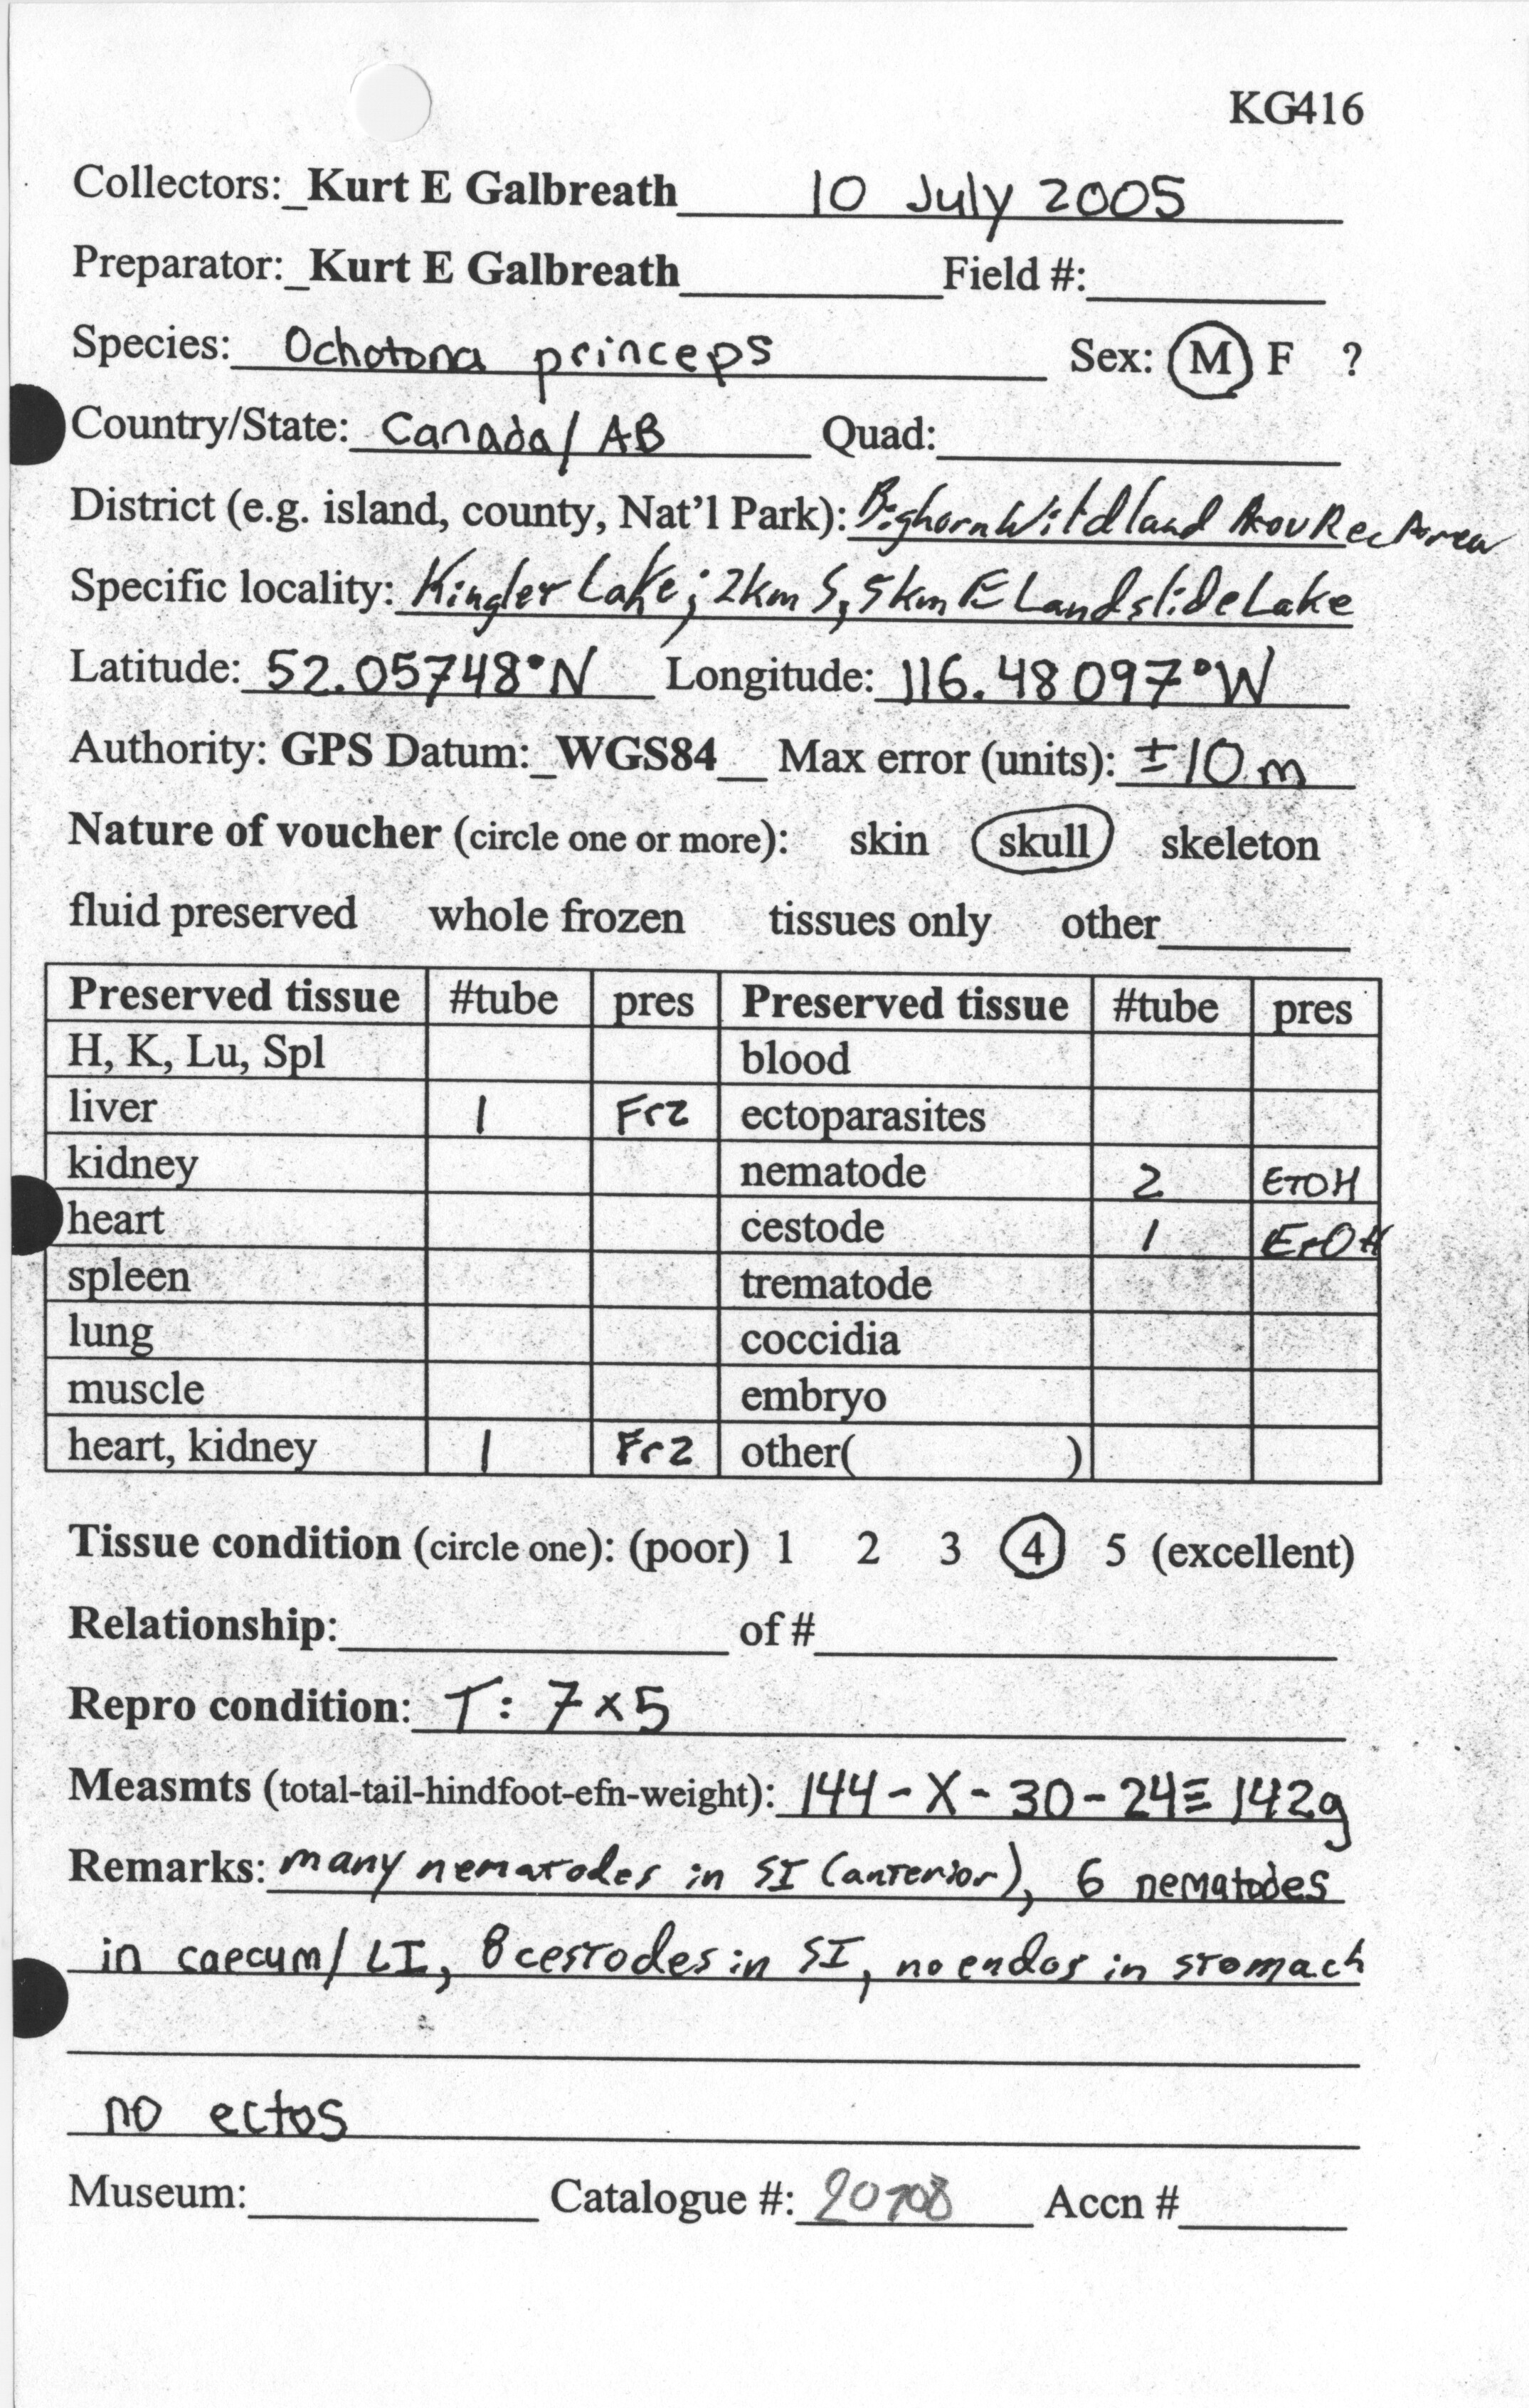 KG416
Collectors:_Kurt E Galbreath 10 July 2005
Preparator:_Kurt E Galbreath Field #:
Species: Ochotona princeps Sex: M F ?
Country/State: Canada/AB Quad:
District (e.g. island, county, Nat'l Park): Bighorn Wildland Prov Rec Area
Specific locality: Lake; 2km S, 5km E Landslide Lake
Latitude: 52.05748°N Longitude: 116.48097°W
Authority: GPS Datum:_WGS84__ Max error (units): ±10m
Nature of voucher (circle one or more): skin skull skeleton
fluid preserved whole frozen tissues only other
Preserved tissue #tube pres Preserved tissue #tube pres
H, K, Lu, Spl blood
liver 1 Frz ectoparasites
kidney nematode 2 ETOH
heart cestode 1 ETOH
spleen trematode
lung coccidia
muscle embryo
heart, kidney 1 Frz other( )
Tissue condition (circle one): (poor) 1 2 3 4 5 (excellent)
Relationship: of #
Repro condition: T: 7x5
Measmts (total-tail-hindfoot-efn-weight): 144-X-30-24≡142g
Remarks: many nematodes in SI (anterior), 6 nematodes
in caecum/LI, 8 cestodes in SI, no endos in stomach
no ectos
Museum: Catalogue #: 20708 Accn #